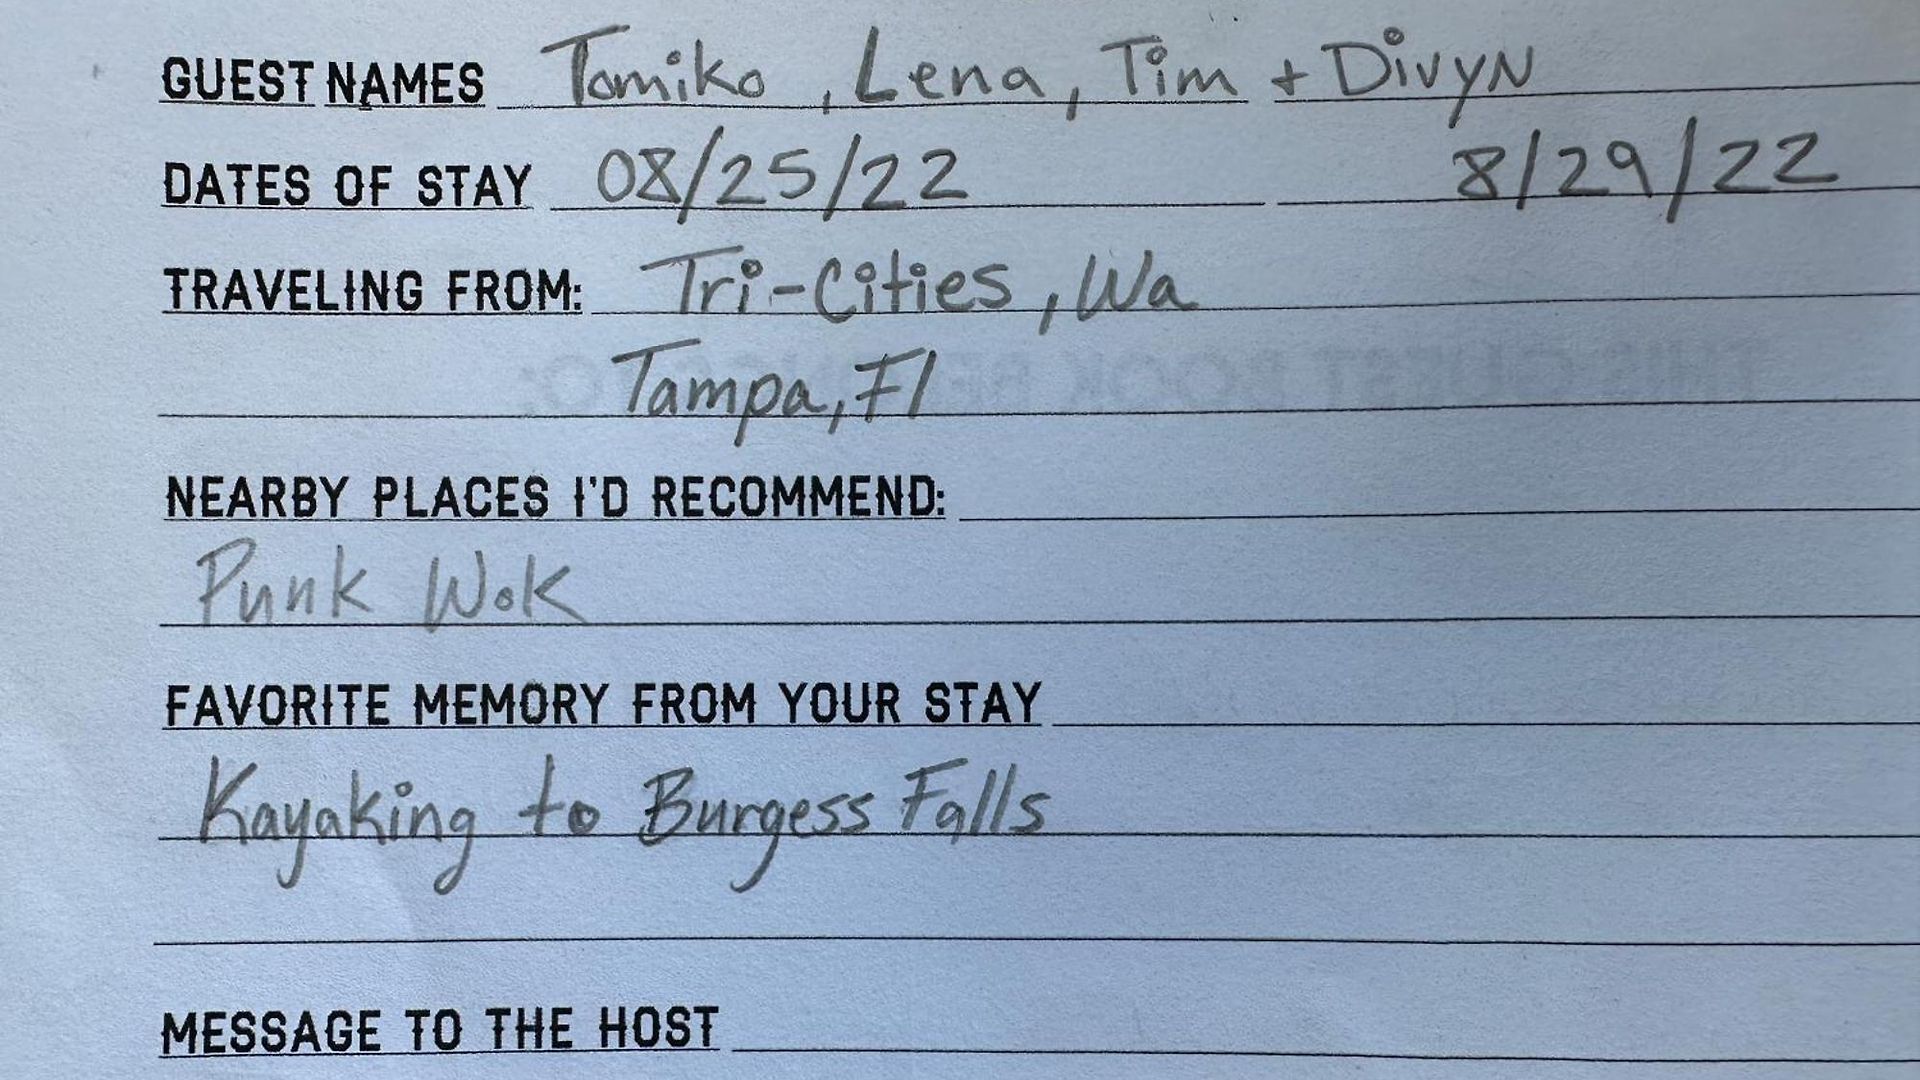 GUEST NAMES Tomiko, Lena, Tim + Divyn
DATES OF STAY 08/25/22 8/29/22
TRAVELING FROM: Tri-Cities, Wa
Tampa, Fl
THIS GUEST BOOK BELONGS TO:
NEARBY PLACES I'D RECOMMEND:
Punk Wok
FAVORITE MEMORY FROM YOUR STAY
Kayaking to Burgess Falls
MESSAGE TO THE HOST